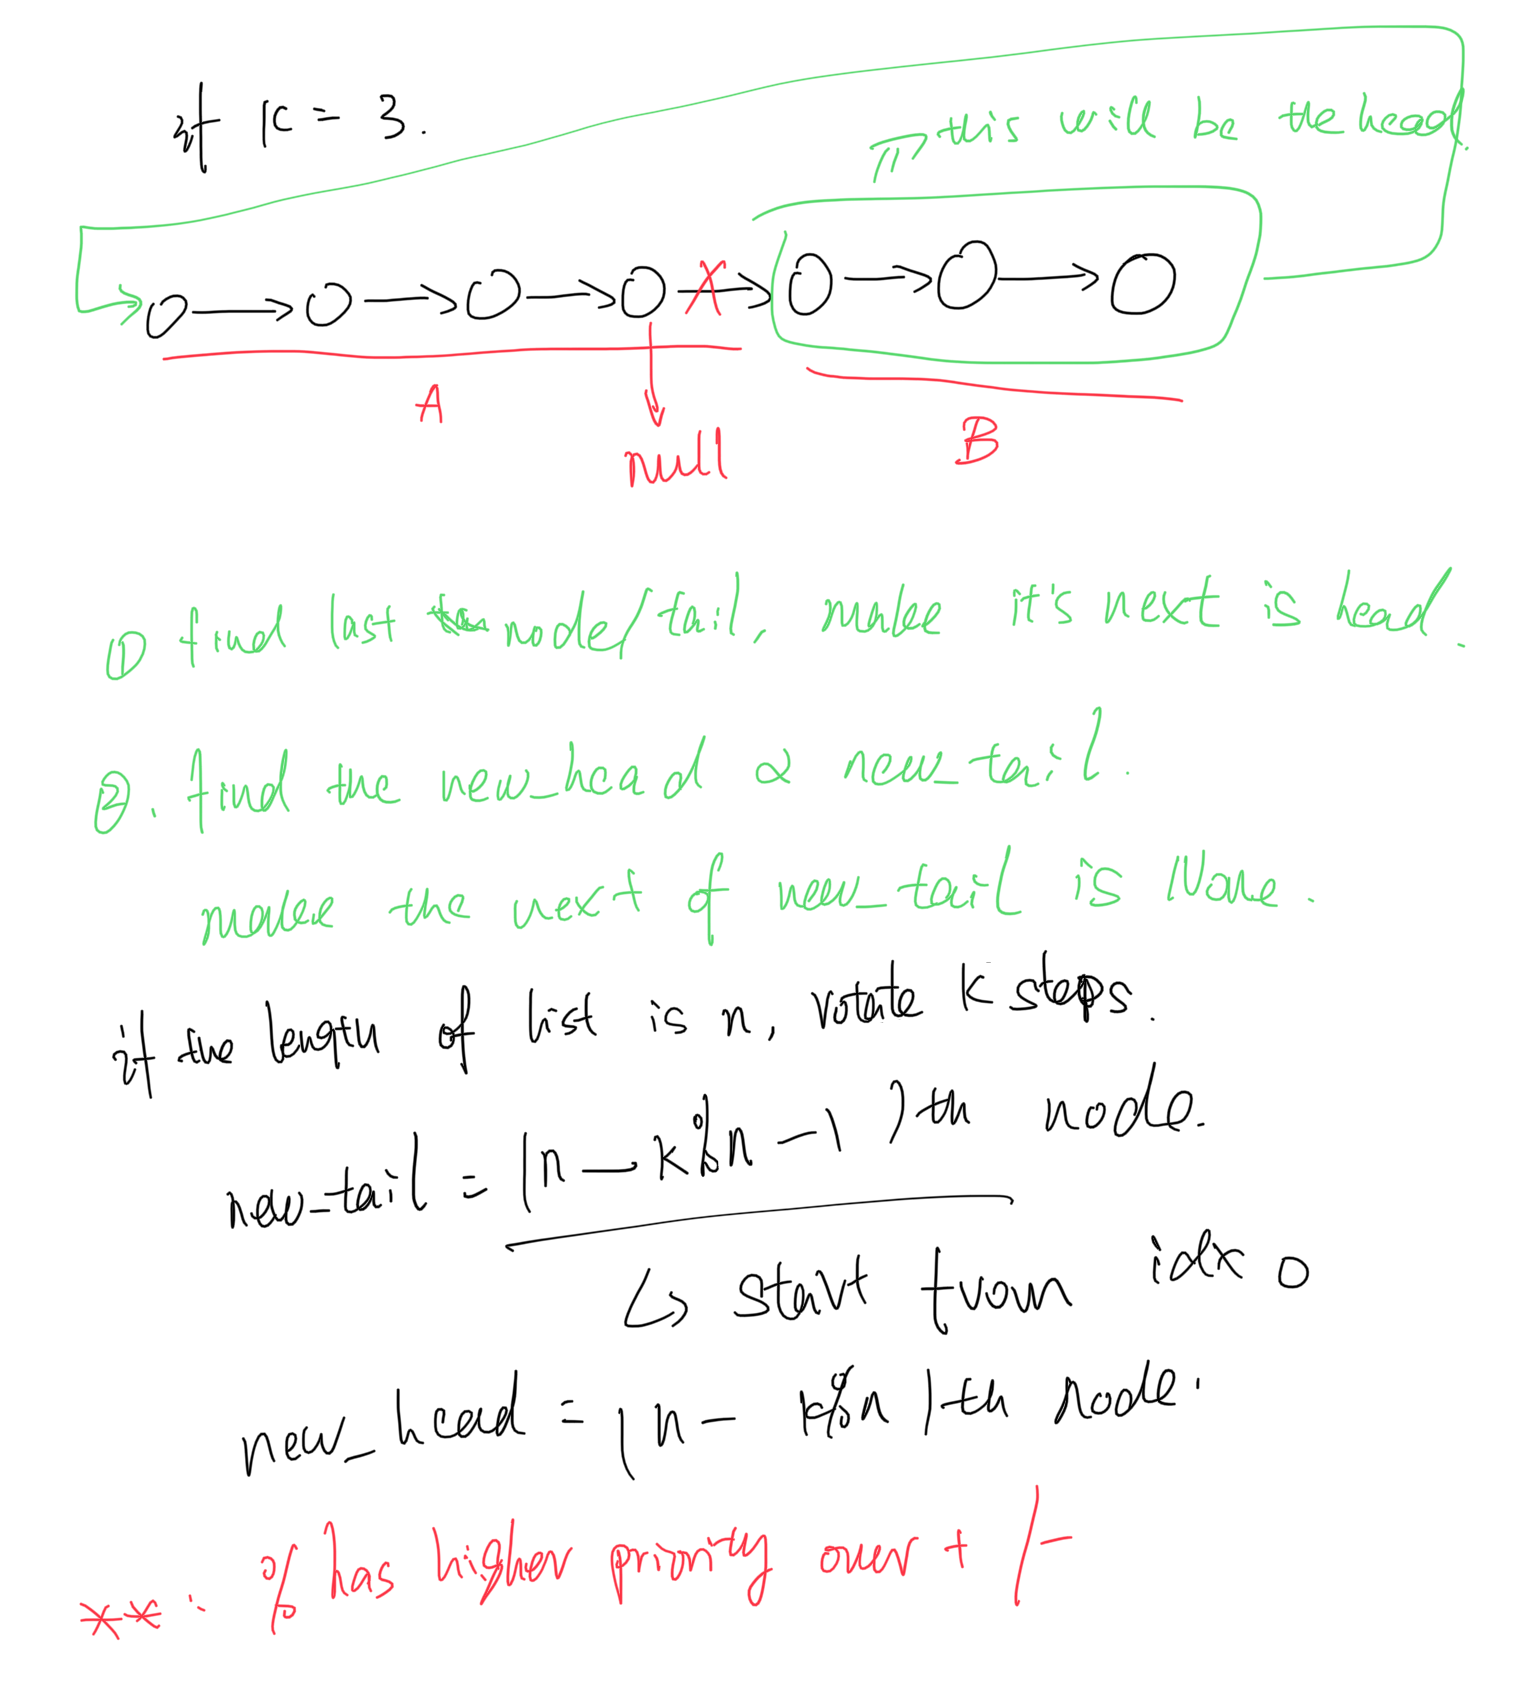 if k = 3.
this will be the head.
A
null
B
① find last node/tail, make it's next is head.
②. find the new_head & new_tail.
make the next of new_tail is None.
if the length of list is n, rotate k steps.
new_tail = (n - k%n - 1)th node.
↳ start from idx 0
new_head = (n - k%n)th node.
**. % has higher priority over + / -